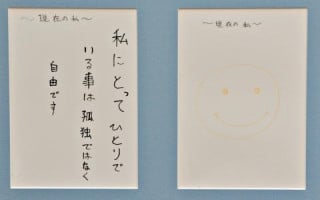 ～現在の私～
私にとってひとりで
いる事は孤独ではなく
自由です
～現在の私～